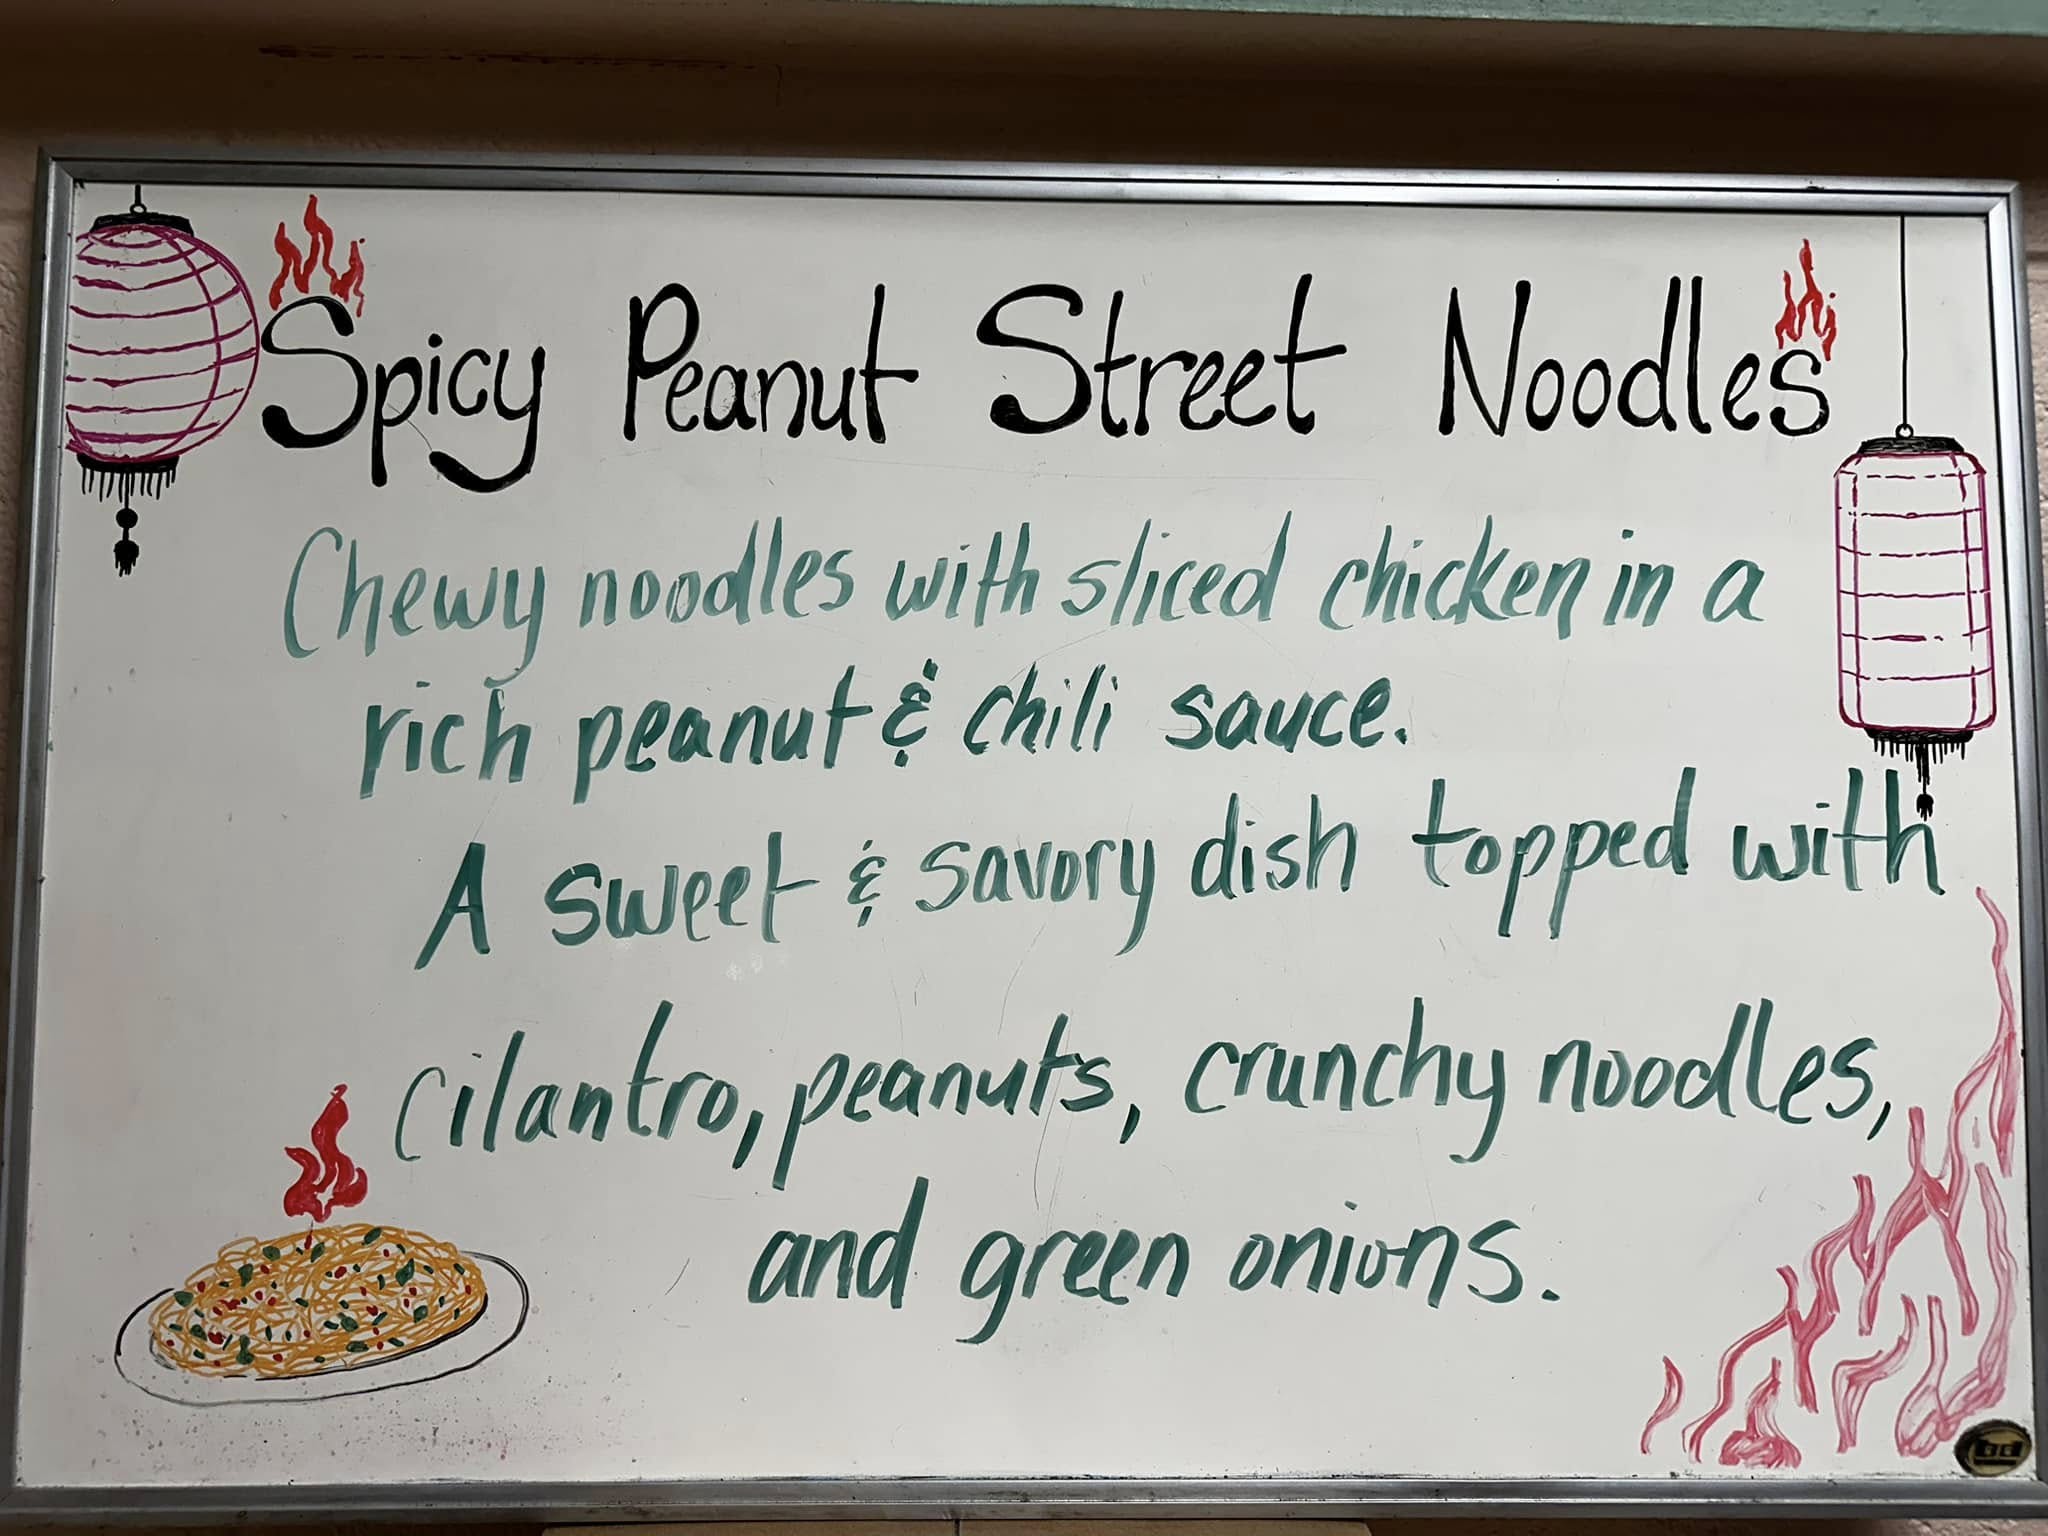 Spicy Peanut Street Noodles
Chewy noodles with sliced chicken in a
rich peanut & chili sauce.
A sweet & savory dish topped with
cilantro, peanuts, crunchy noodles,
and green onions.